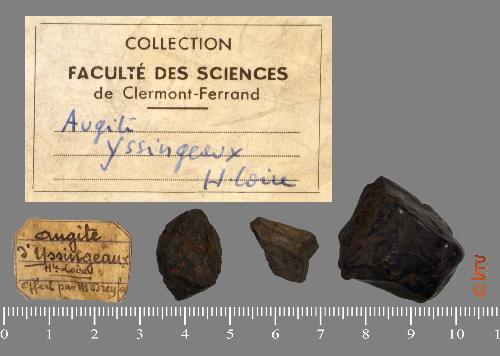 COLLECTION
FACULTÉ DES SCIENCES
de Clermont-Ferrand
Augite
Yssingeaux
H-Loire
augite
d'Yssingeaux
Hte-Loire
offert par M.
0 1 2 3 4 5 6 7 8 9 10 1